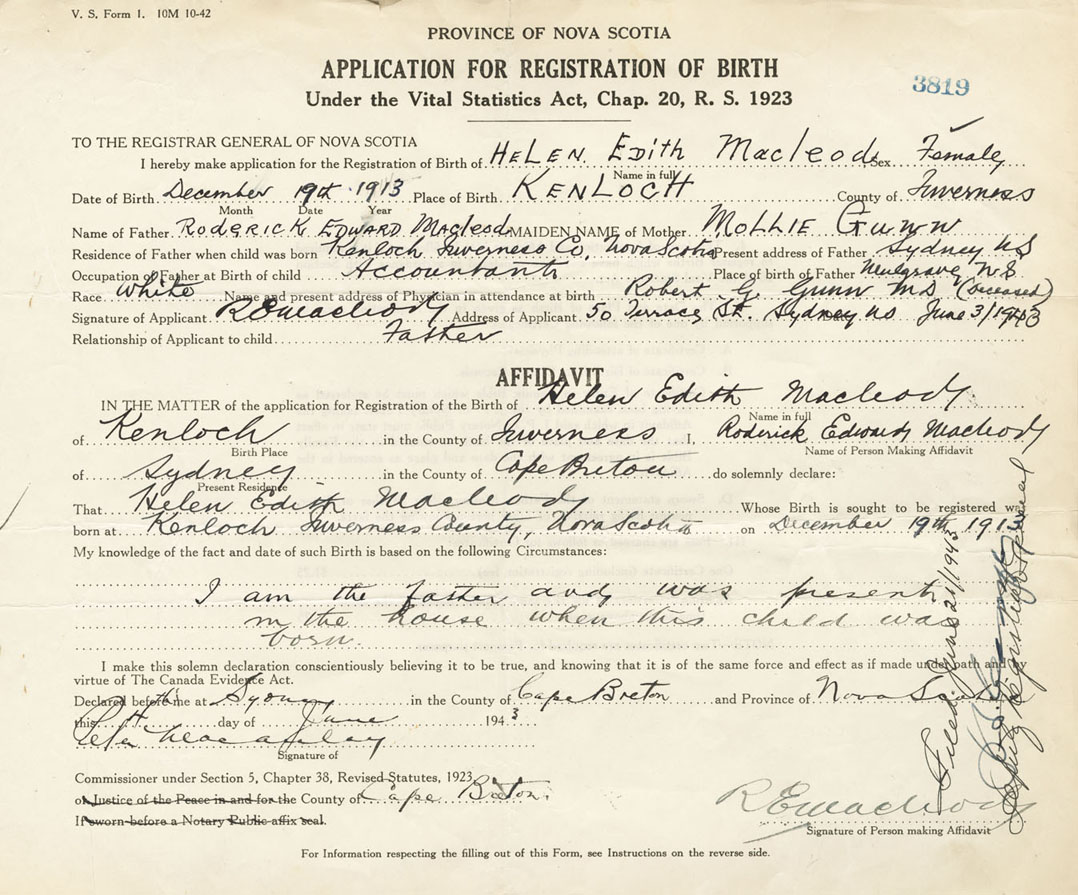 V. S. Form 1. 10M 10-42
PROVINCE OF NOVA SCOTIA
APPLICATION FOR REGISTRATION OF BIRTH
3819
Under the Vital Statistics Act, Chap. 20, R. S. 1923
TO THE REGISTRAR GENERAL OF NOVA SCOTIA
I hereby make application for the Registration of Birth of HELEN Edith Macleod Sex Female
Name in full
Date of Birth December 19th 1913 Place of Birth KENLOCH County of Inverness
Month Date Year
Name of Father RODERICK EDWARD Macleod MAIDEN NAME of Mother MOLLIE Gunn
Residence of Father when child was born Kenloch Inverness Co, Nova Scotia Present address of Father Sydney NS
Occupation of Father at Birth of child Accountant Place of birth of Father Mulgrave N S
Race White Name and present address of Physician in attendance at birth Robert G. Gunn MD (Deceased)
Signature of Applicant REMacleod Address of Applicant 50 Terrace St. Sydney NS June 3/1943
Relationship of Applicant to child Father
AFFIDAVIT
IN THE MATTER of the application for Registration of the Birth of Helen Edith Macleod
Name in full
of Kenloch in the County of Inverness I, Roderick Edward Macleod
Birth Place Name of Person Making Affidavit
of Sydney in the County of Cape Breton do solemnly declare:
Present Residence
That Helen Edith Macleod Whose Birth is sought to be registered was
born at Kenloch Inverness County, Nova Scotia on December 19th 1913
My knowledge of the fact and date of such Birth is based on the following Circumstances:
I am the father and was present
in the house when this child was
born.
I make this solemn declaration conscientiously believing it to be true, and knowing that it is of the same force and effect as if made under oath and by
virtue of The Canada Evidence Act.
Declared before me at Sydney in the County of Cape Breton and Province of Nova Scotia
this day of June 1943
Signature of
Commissioner under Section 5, Chapter 38, Revised Statutes, 1923
or Justice of the Peace in and for the County of Cape Breton.
If sworn before a Notary Public affix seal.
REMacleod
Signature of Person making Affidavit
For Information respecting the filling out of this Form, see Instructions on the reverse side.
Filed June 21/1943
Deputy Registrar General